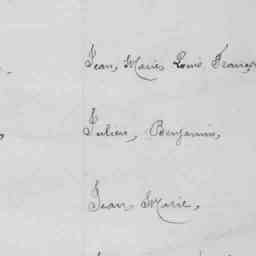 Jean, Marie, Louis, Franço
Julien, Benjamin,
Jean, Marie,